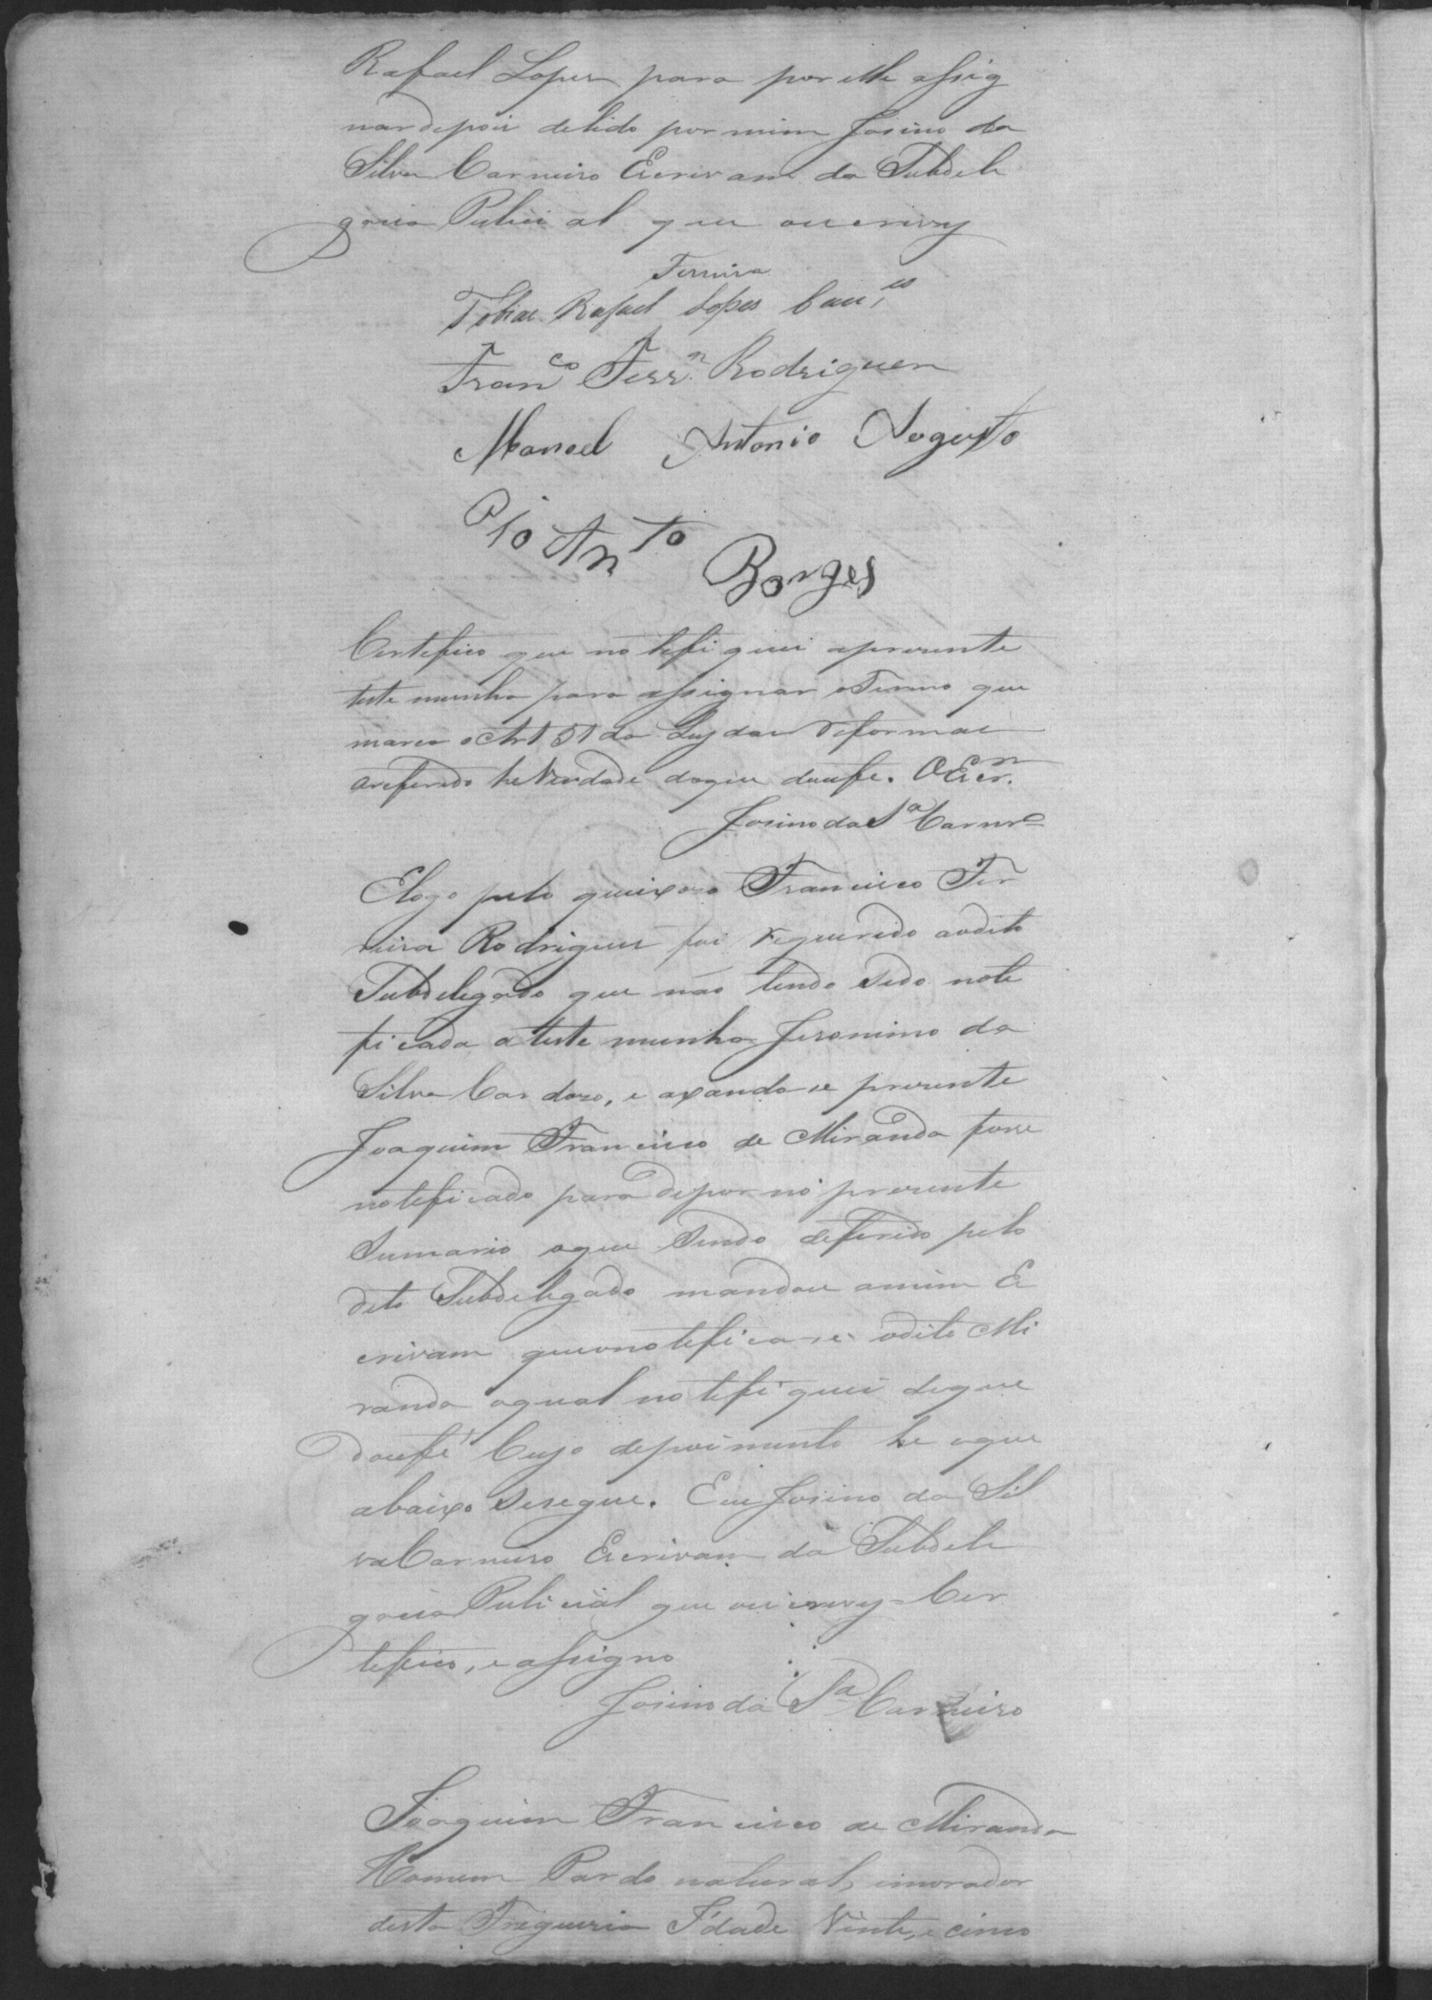 Rafael Lopes para por elle assig
nar depois de lido por mim Josino da
Silva Carneiro Escrivam da Subdele
gacia Policial que o escrevy
Ferreira
Tobias Rafael Lopes
Fran.co Ferr.ª Rodrigues
Manoel Antonio Augusto
Pio Anto Borges
Certefico que notefiquei a prezente
teste munha para assignar o Termo que
marca o Art 51 da Ley das Reformas
o referido he Verdade do que dou fe. O Escr.m
Josino da S.ª Carnr.o
E logo pelo queixozo Francisco Fer
reira Rodrigues foi requerido ao dito
Subdelegado que não tendo sido note
ficada a teste munha Jeronimo da
Silva Cardozo, e axando se prezente
Joaquim Francisco de Miranda fosse
noteficado para depor no prezente
Sumario o que sendo deferido pelo
dito Subdelegado mandou a mim Es
crivam que o noteficase o dito Mi
randa o qual notefiquei do que
dou fe Cujo depoimento he o que
abaixo se segue. Eu Josino da Sil
va Carneiro Escrivam da Subdele
gacia Policial que o escrevy Cer
tefico, e assigno
Josino da S.ª Carneiro
Joaquim Francisco de Miranda
Homem Pardo natural, e morador
desta Freguezia Idade Vinte, e cinco